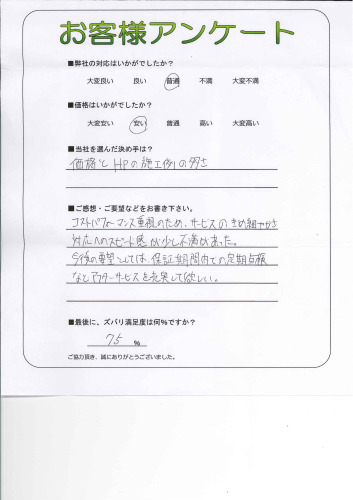 お客様アンケート
■弊社の対応はいかがでしたか？
大変良い 良い 普通 不満 大変不満
■価格はいかがでしたか？
大変安い 安い 普通 高い 大変高い
■当社を選んだ決め手は？
価格とHPの施工例の多さ
■ご感想・ご要望などをお書き下さい。
コストパフォーマンス重視のため、サービスのきめ細やかさ
対応へのスピード感が少し不満があった。
今後の要望としては、保証期間内での定期点検
などアフターサービスを充実して欲しい。
■最後に、ズバリ満足度は何%ですか？
75 %
ご協力頂き、誠にありがとうございました。